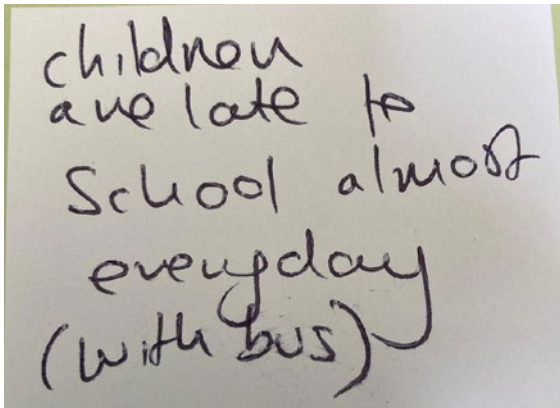 children
are late to
School almost
everyday
(with bus)